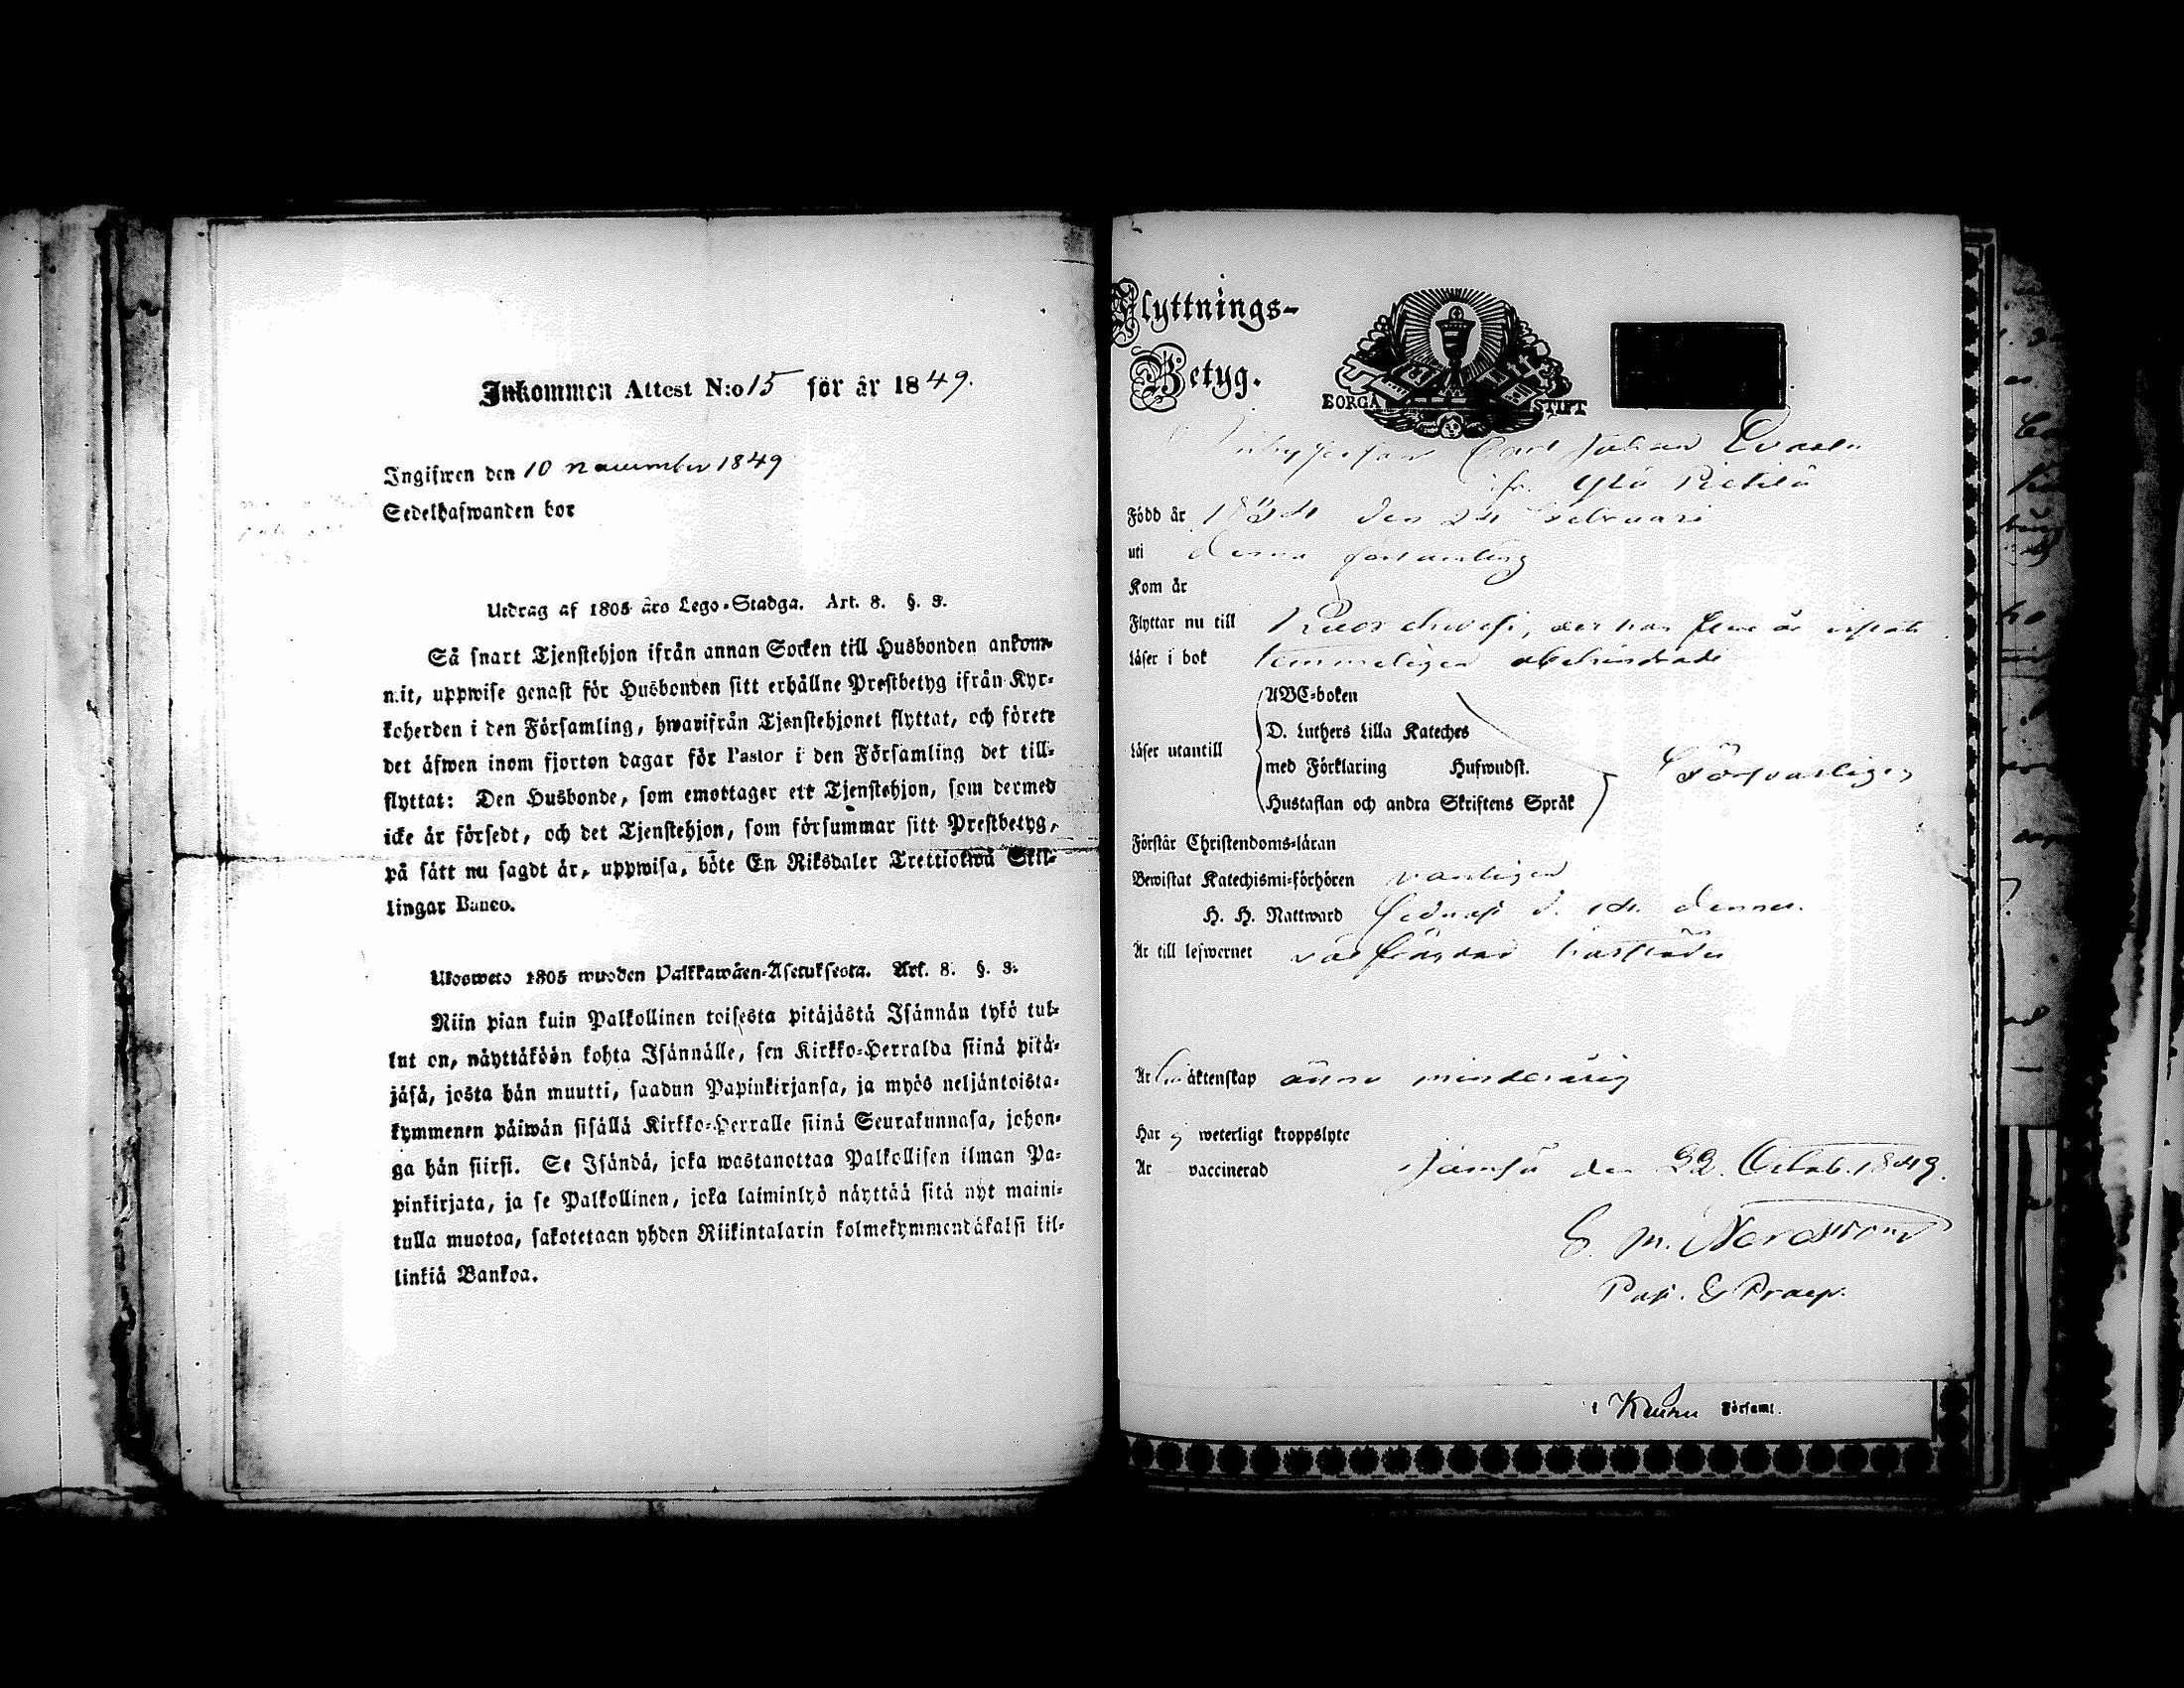 Inkommen Attest N:o 15 för år 1849.
Ingifwen den 10 november 1849
Sedelhafwanden bor
Utdrag af 1805 års Lego-Stadga. Art. 8. §. 3.
Så snart Tjenstehjon ifrån annan Socken till Husbonden ankom-
mit, uppwise genast för Husbonden sitt erhållne Prestbetyg ifrån Kyr-
koherden i den Församling, hwarifrån Tjenstehjonet flyttat, och förete
det äfwen inom fjorton dagar för Pastor i den Församling det till-
flyttat: Den Husbonde, som emottager ett Tjenstehjon, som dermed
icke är försedt, och det Tjenstehjon, som försummar sitt Prestbetyg,
på sätt nu sagdt är, uppwisa, böte En Riksdaler Trettiotwå Skil-
lingar Banco.
Ulosweto 1805 wuoden Palkkawäen-Asetuksesta. Art. 8. §. 3.
Niin pian kuin Palkollinen toisesta pitäjästä Isännän tykö tul-
lut on, näyttäköön kohta Isännälle, sen Kirkko-Herralda siinä pitä-
jäsä, josta hän muutti, saadun Papinkirjansa, ja myös neljäntoista-
kymmenen päiwän sisällä Kirkko-Herralle siinä Seurakunnasa, johon-
ga hän siirsi. Se Isändä, joka wastanottaa Palkollisen ilman Pa-
pinkirjata, ja se Palkollinen, joka laiminlyö näyttää sitä nyt maini-
tulla muotoa, sakotetaan yhden Riikintalarin kolmekymmendäkaksi kil-
linkiä Bankoa.
Flyttnings-
Betyg.
BORGÅ STIFT
Carl Johan
Ylä Pietilä
Född år 1834 den 24 Februari
uti denna församling
Kom år
Flyttar nu till Ruovehvesi, der han flere år vistats
Läser i bok temmeligen obehindradt
Läser utantill
ABC-boken
D. Luthers Lilla Kateches
med Förklaring Hufwudst.
Hustaflan och andra Skriftens Språk
Försvarligen
Förstår Christendoms-läran
Bewistat Katechismi-förhören vanligen
H. H. Nattward sednast d. 14 dennes.
Är till lefwernet
Är i äktenskap ännu minderårig
Har ej weterligt kroppslyte
Är vaccinerad
Jämsä den 22 Octob. 1849.
E. M. Nordström
Past. & Praep.
i Kuhmo Församl.